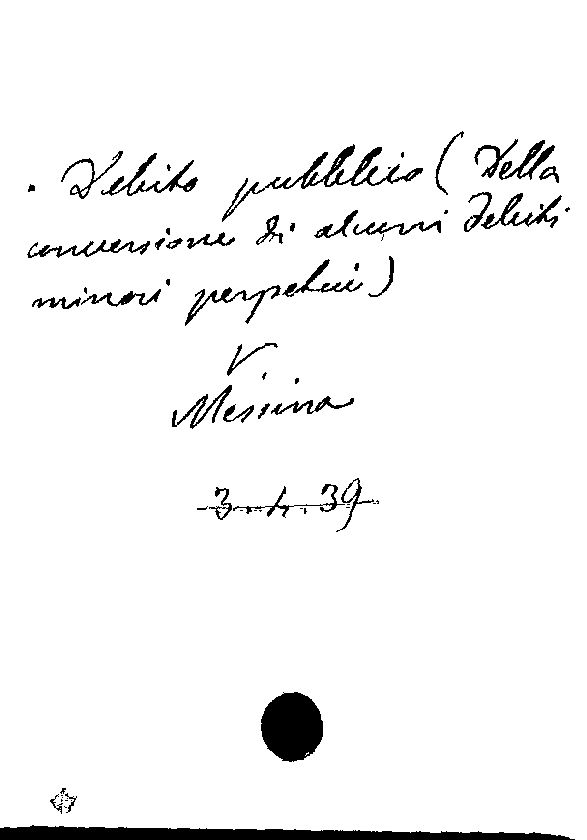 . Debito pubblico (Della
conversione di alcuni debiti
minori perpetui)
V
Messina
39